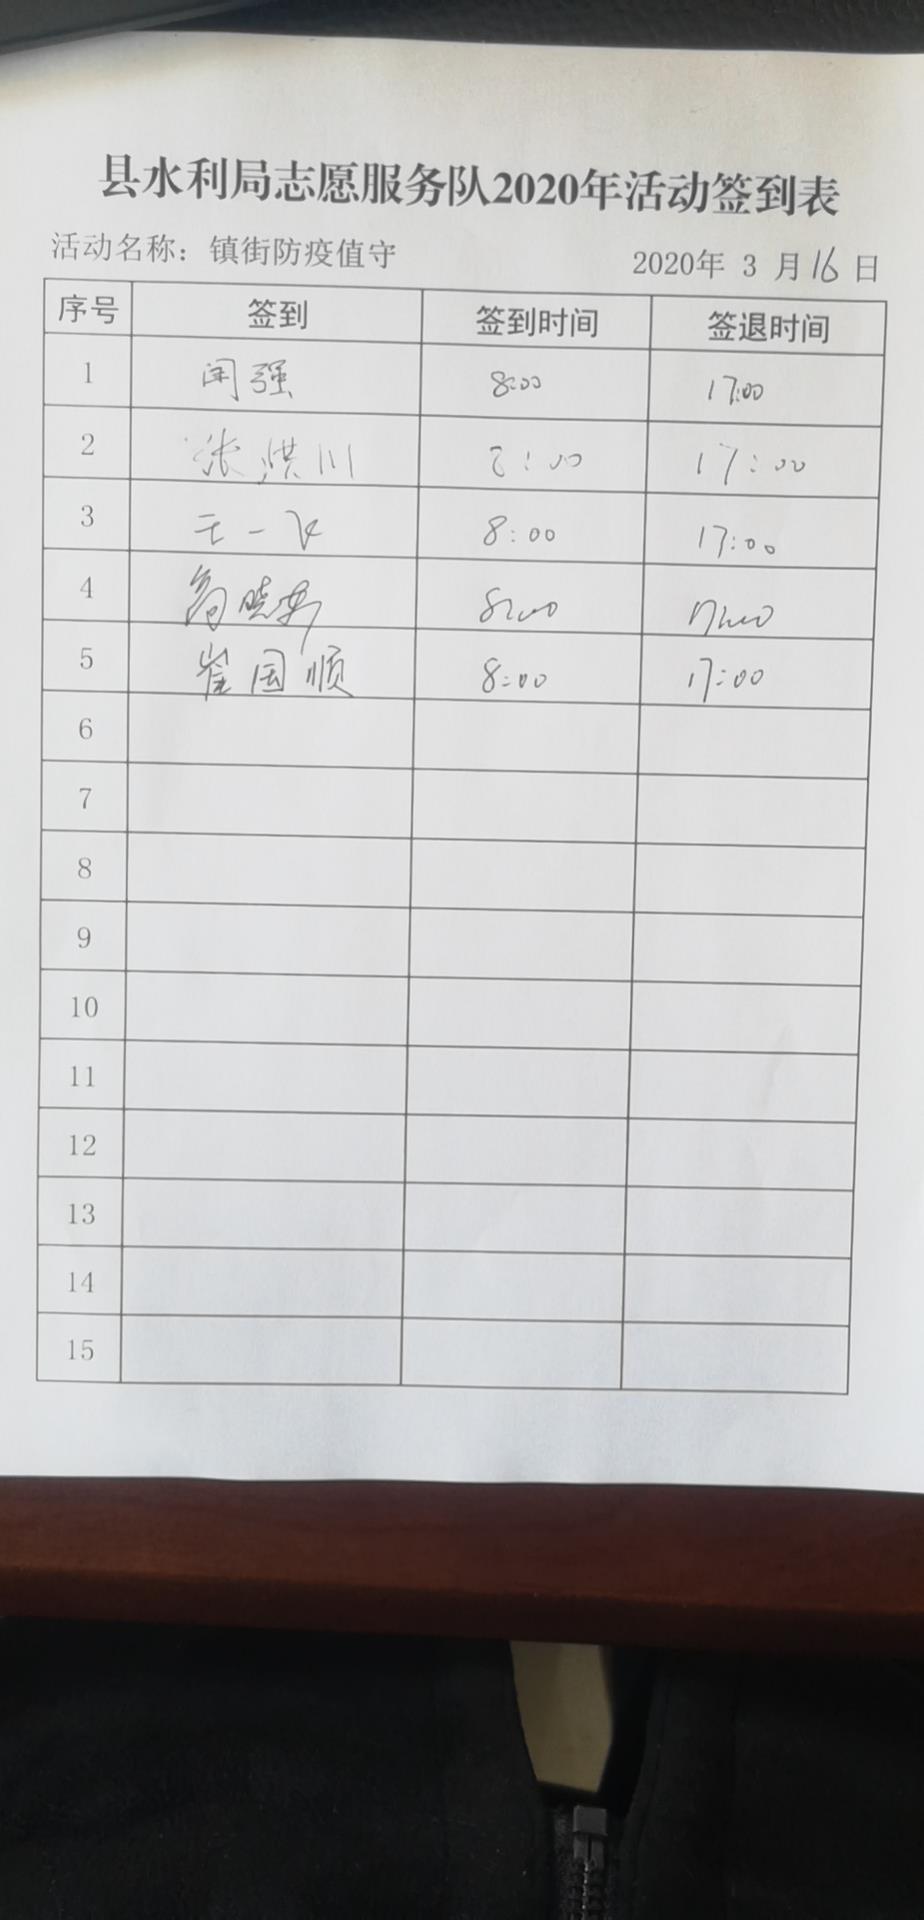 县水利局志愿服务队2020年活动签到表
活动名称：镇街防疫值守 2020年 3 月 16 日
序号 签到 签到时间 签退时间
1 闻强 8:00 17:00
2 张洪川 8:00 17:00
3 王一飞 8:00 17:00
4 8:00 17:00
5 崔国顺 8:00 17:00
6
7
8
9
10
11
12
13
14
15